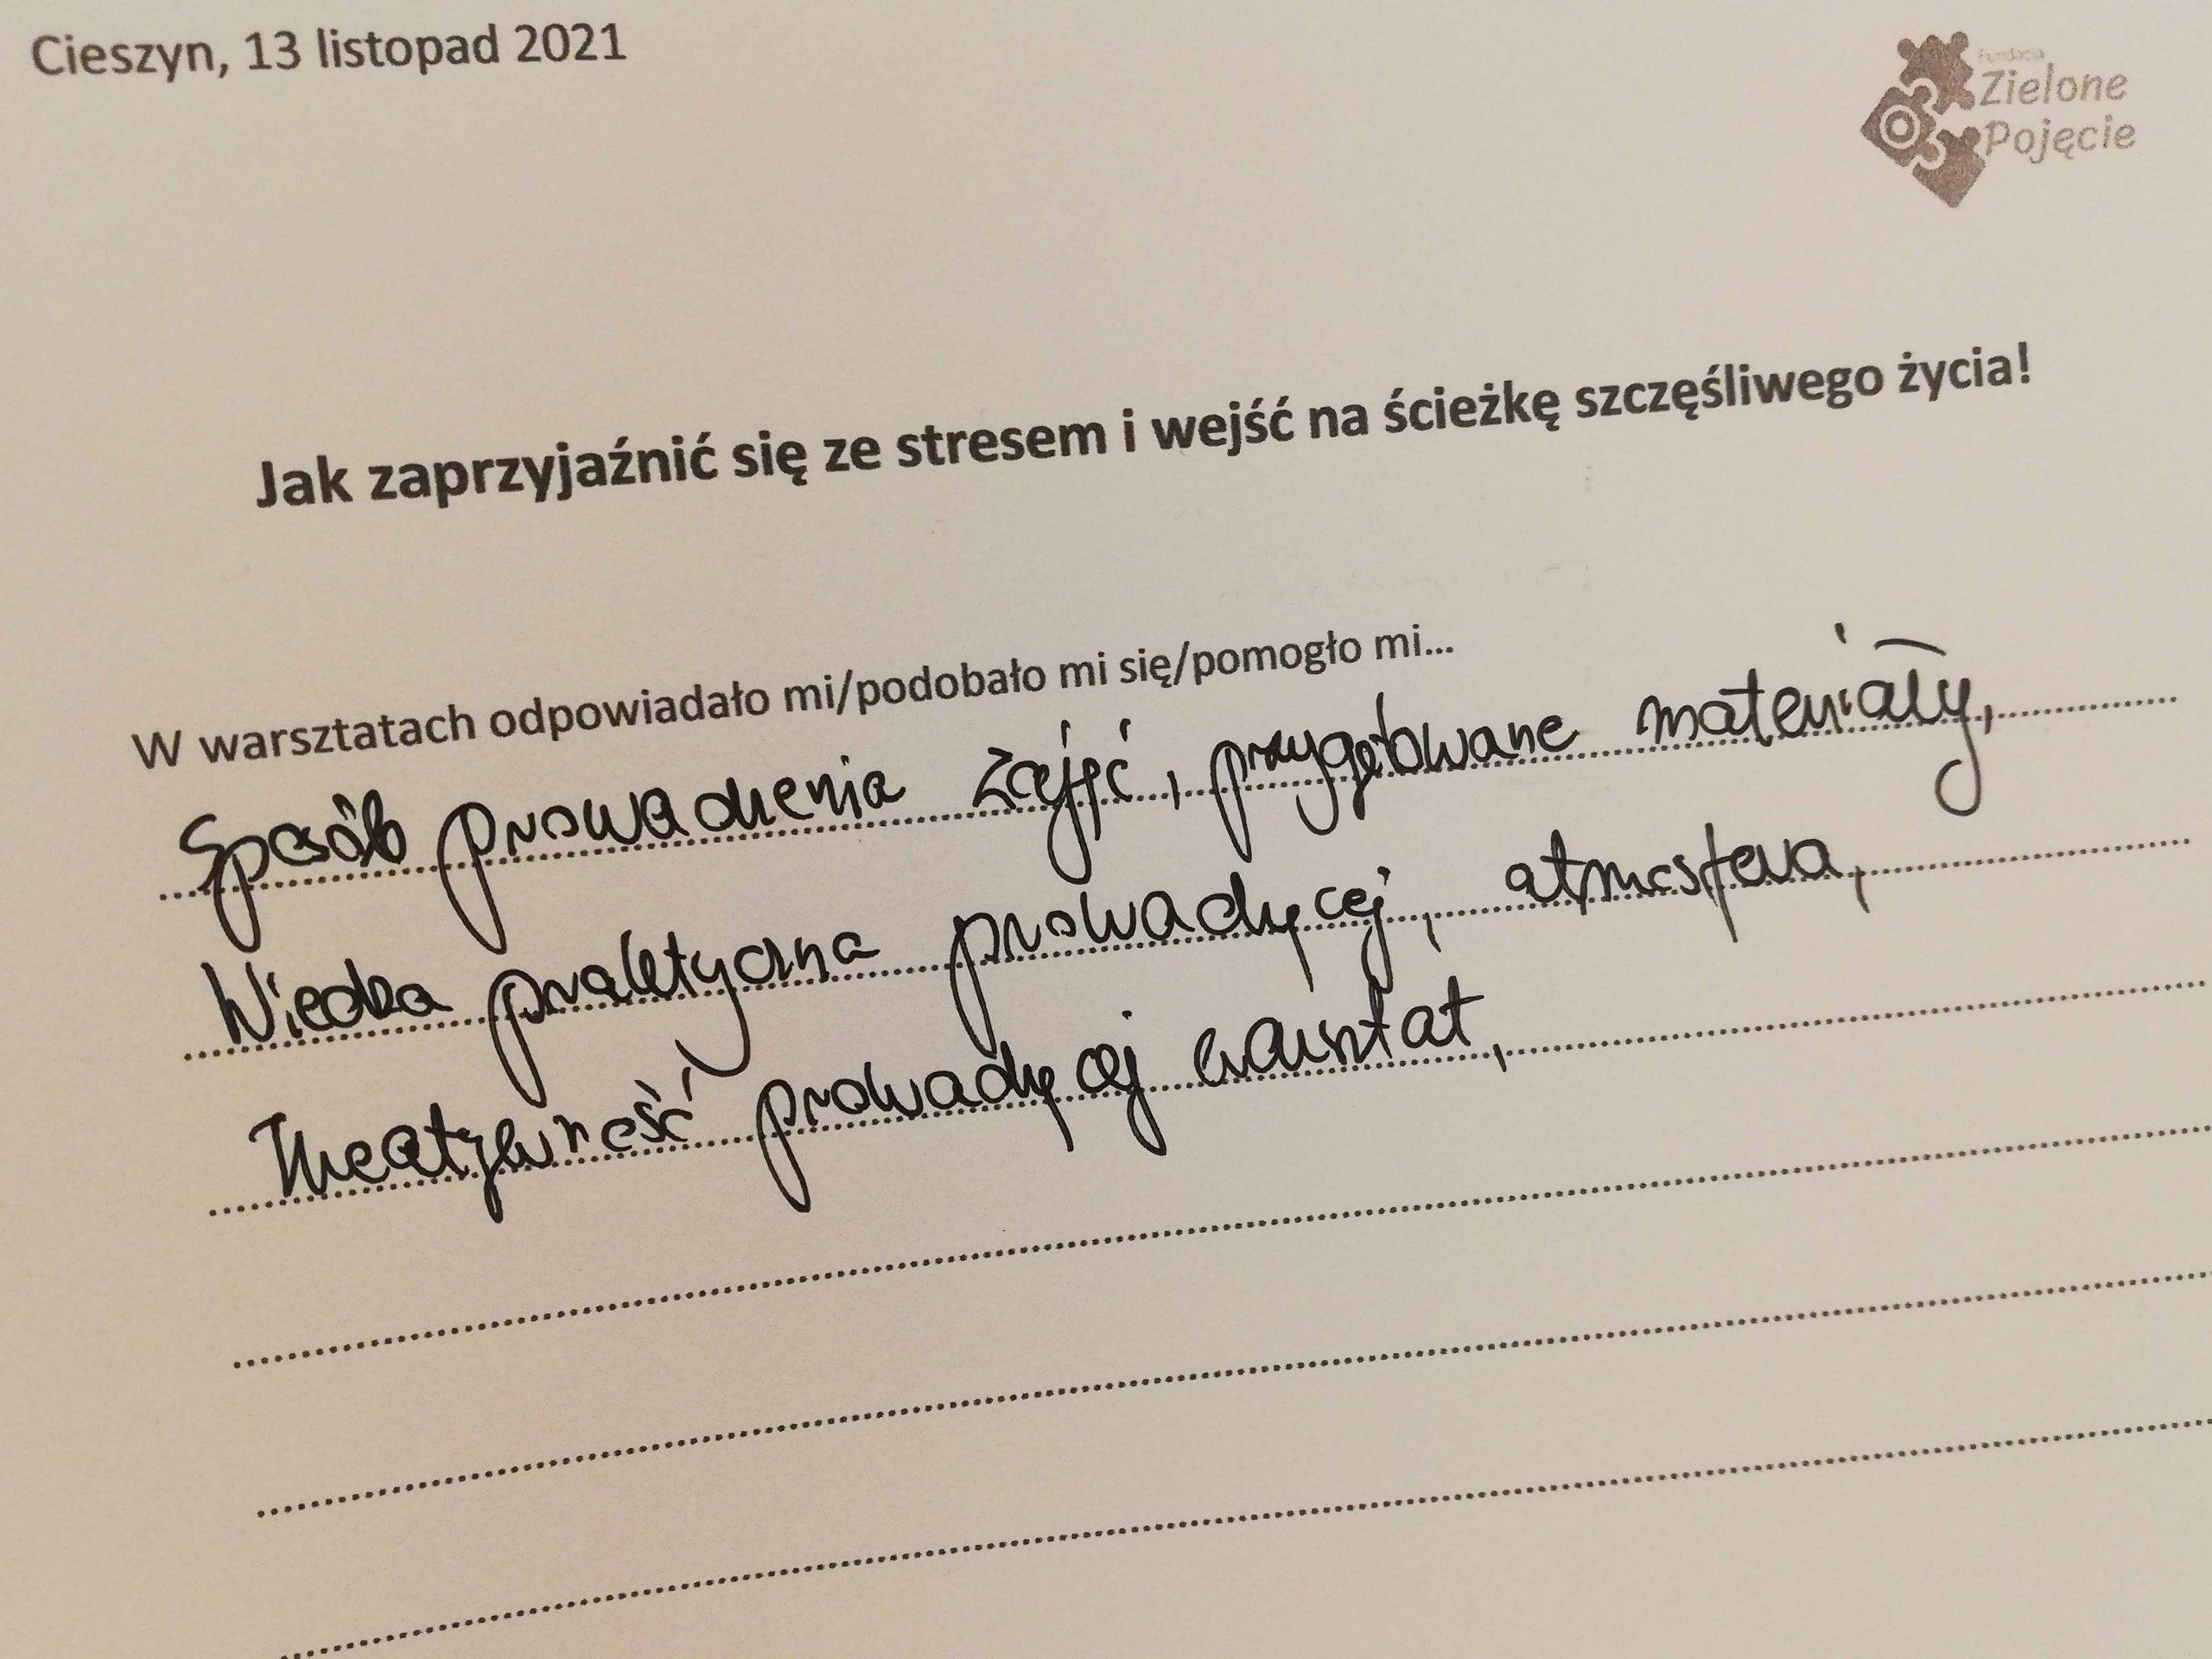 Cieszyn, 13 listopad 2021
Fundacja
Zielone
Pojęcie
Jak zaprzyjaźnić się ze stresem i wejść na ścieżkę szczęśliwego życia!
W warsztatach odpowiadało mi/podobało mi się/pomogło mi...
Sposób prowadzenia zajęć, przygotowane materiały,
Wiedza praktyczna prowadzącej, atmosfera,
Kreatywność prowadzącej warsztat,